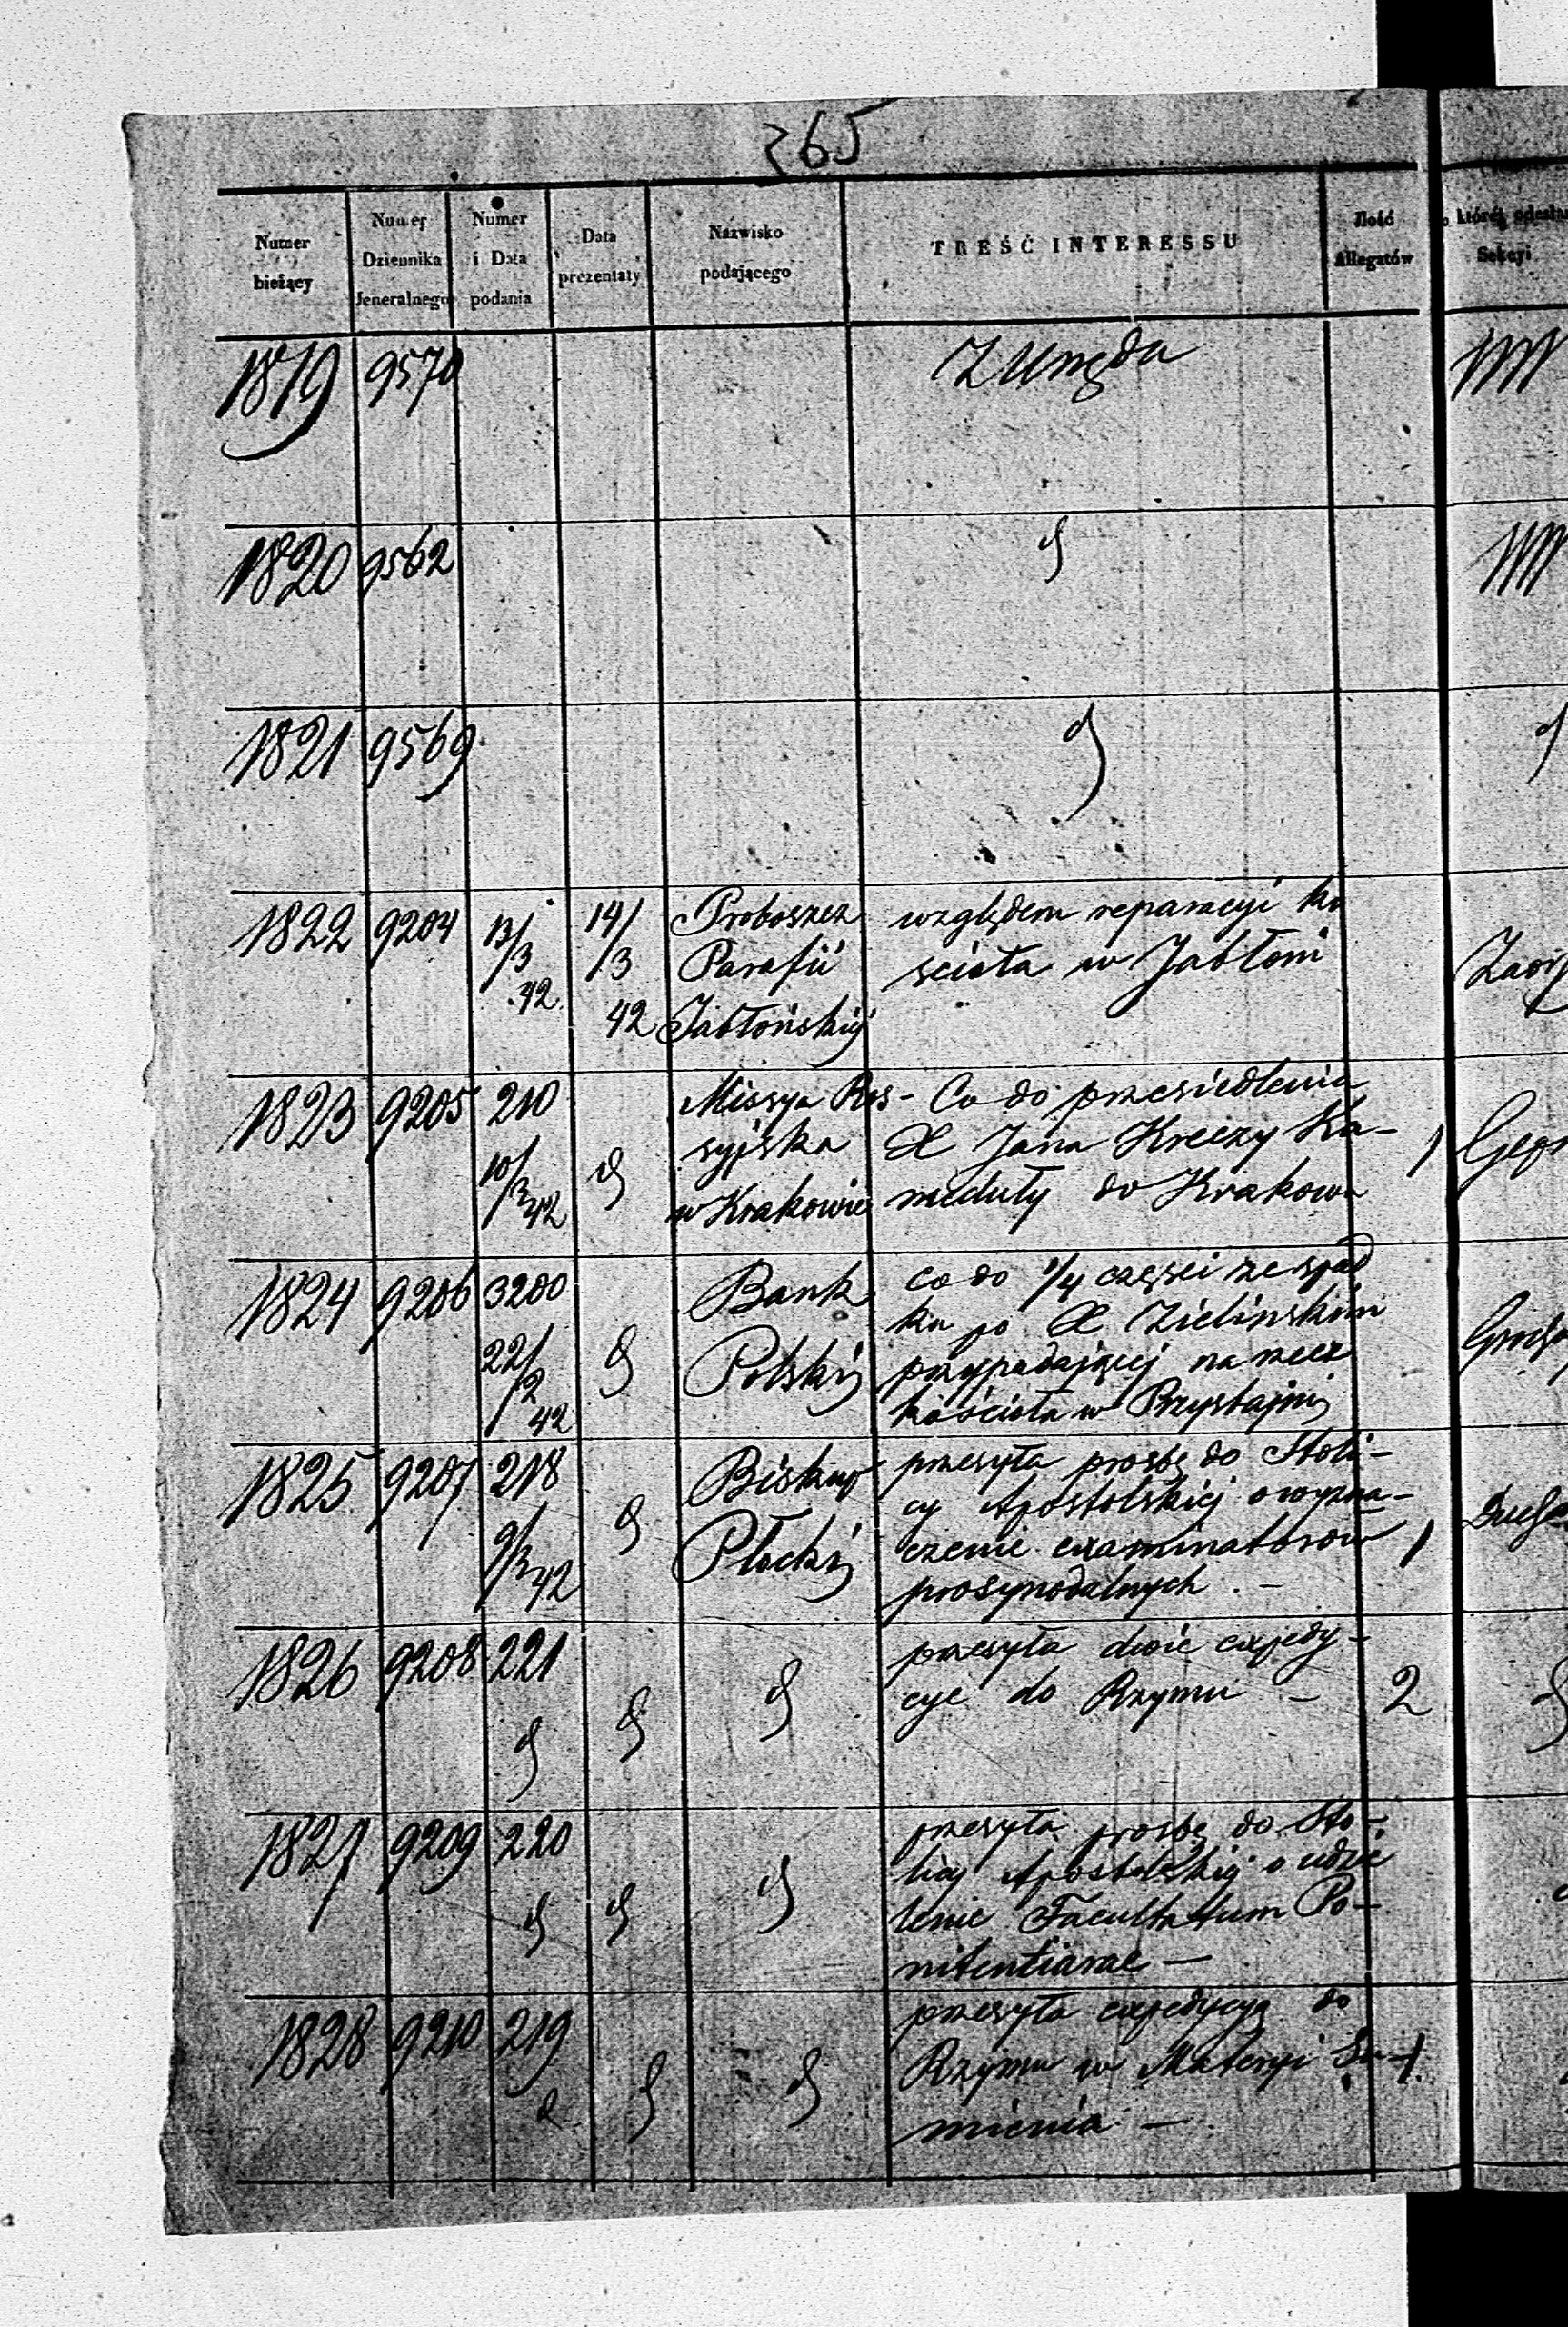 365
Numer bieżący
Numer Dziennika Jeneralnego
Numer i Data podania
Data prezentaty
Nazwisko podającego
TREŚĆ INTERESSU
Ilość Allegatów
której odesłan
Sekcyi
1819 9570 Z Urzędu
1820 9562
1821 9569
1822 9204 13/3 42 14/3 42 Proboszcz Parafii Jabłońskiej
względem reparacyi ko
ścioła w Jabłoni
1823 9205 210 10/3 42 Missya Ros-
syjska
w Krakowie
Co do przesiedlenia
X Jana Kreczy Ka-
meduły do Krakowa
1
1824 9206 3200 22/2 42 Bank
Polski
Co do 1/4 części ze spad
ku po X Zielinskim
przypadającej na rzecz
kościoła w Przystajni
1825 9207 218 9/3 42 Biskup
Płocki
przesyła prosbę do Stoli-
cy Apostolskiej o wyzna-
czenie examinatorow
prosynodalnych. -
1
1826 9208 221
przesyła dwie expedy-
cye do Rzymu -
2
1827 9209 220
przesyła prosbę do Sto-
licy Apostolskiej o udzie
lenie Facultatum Po-
nitentiarae -
1828 9210 219
przesyła expedycyą do
Rzymu w Materyi Su-
mienia -
1